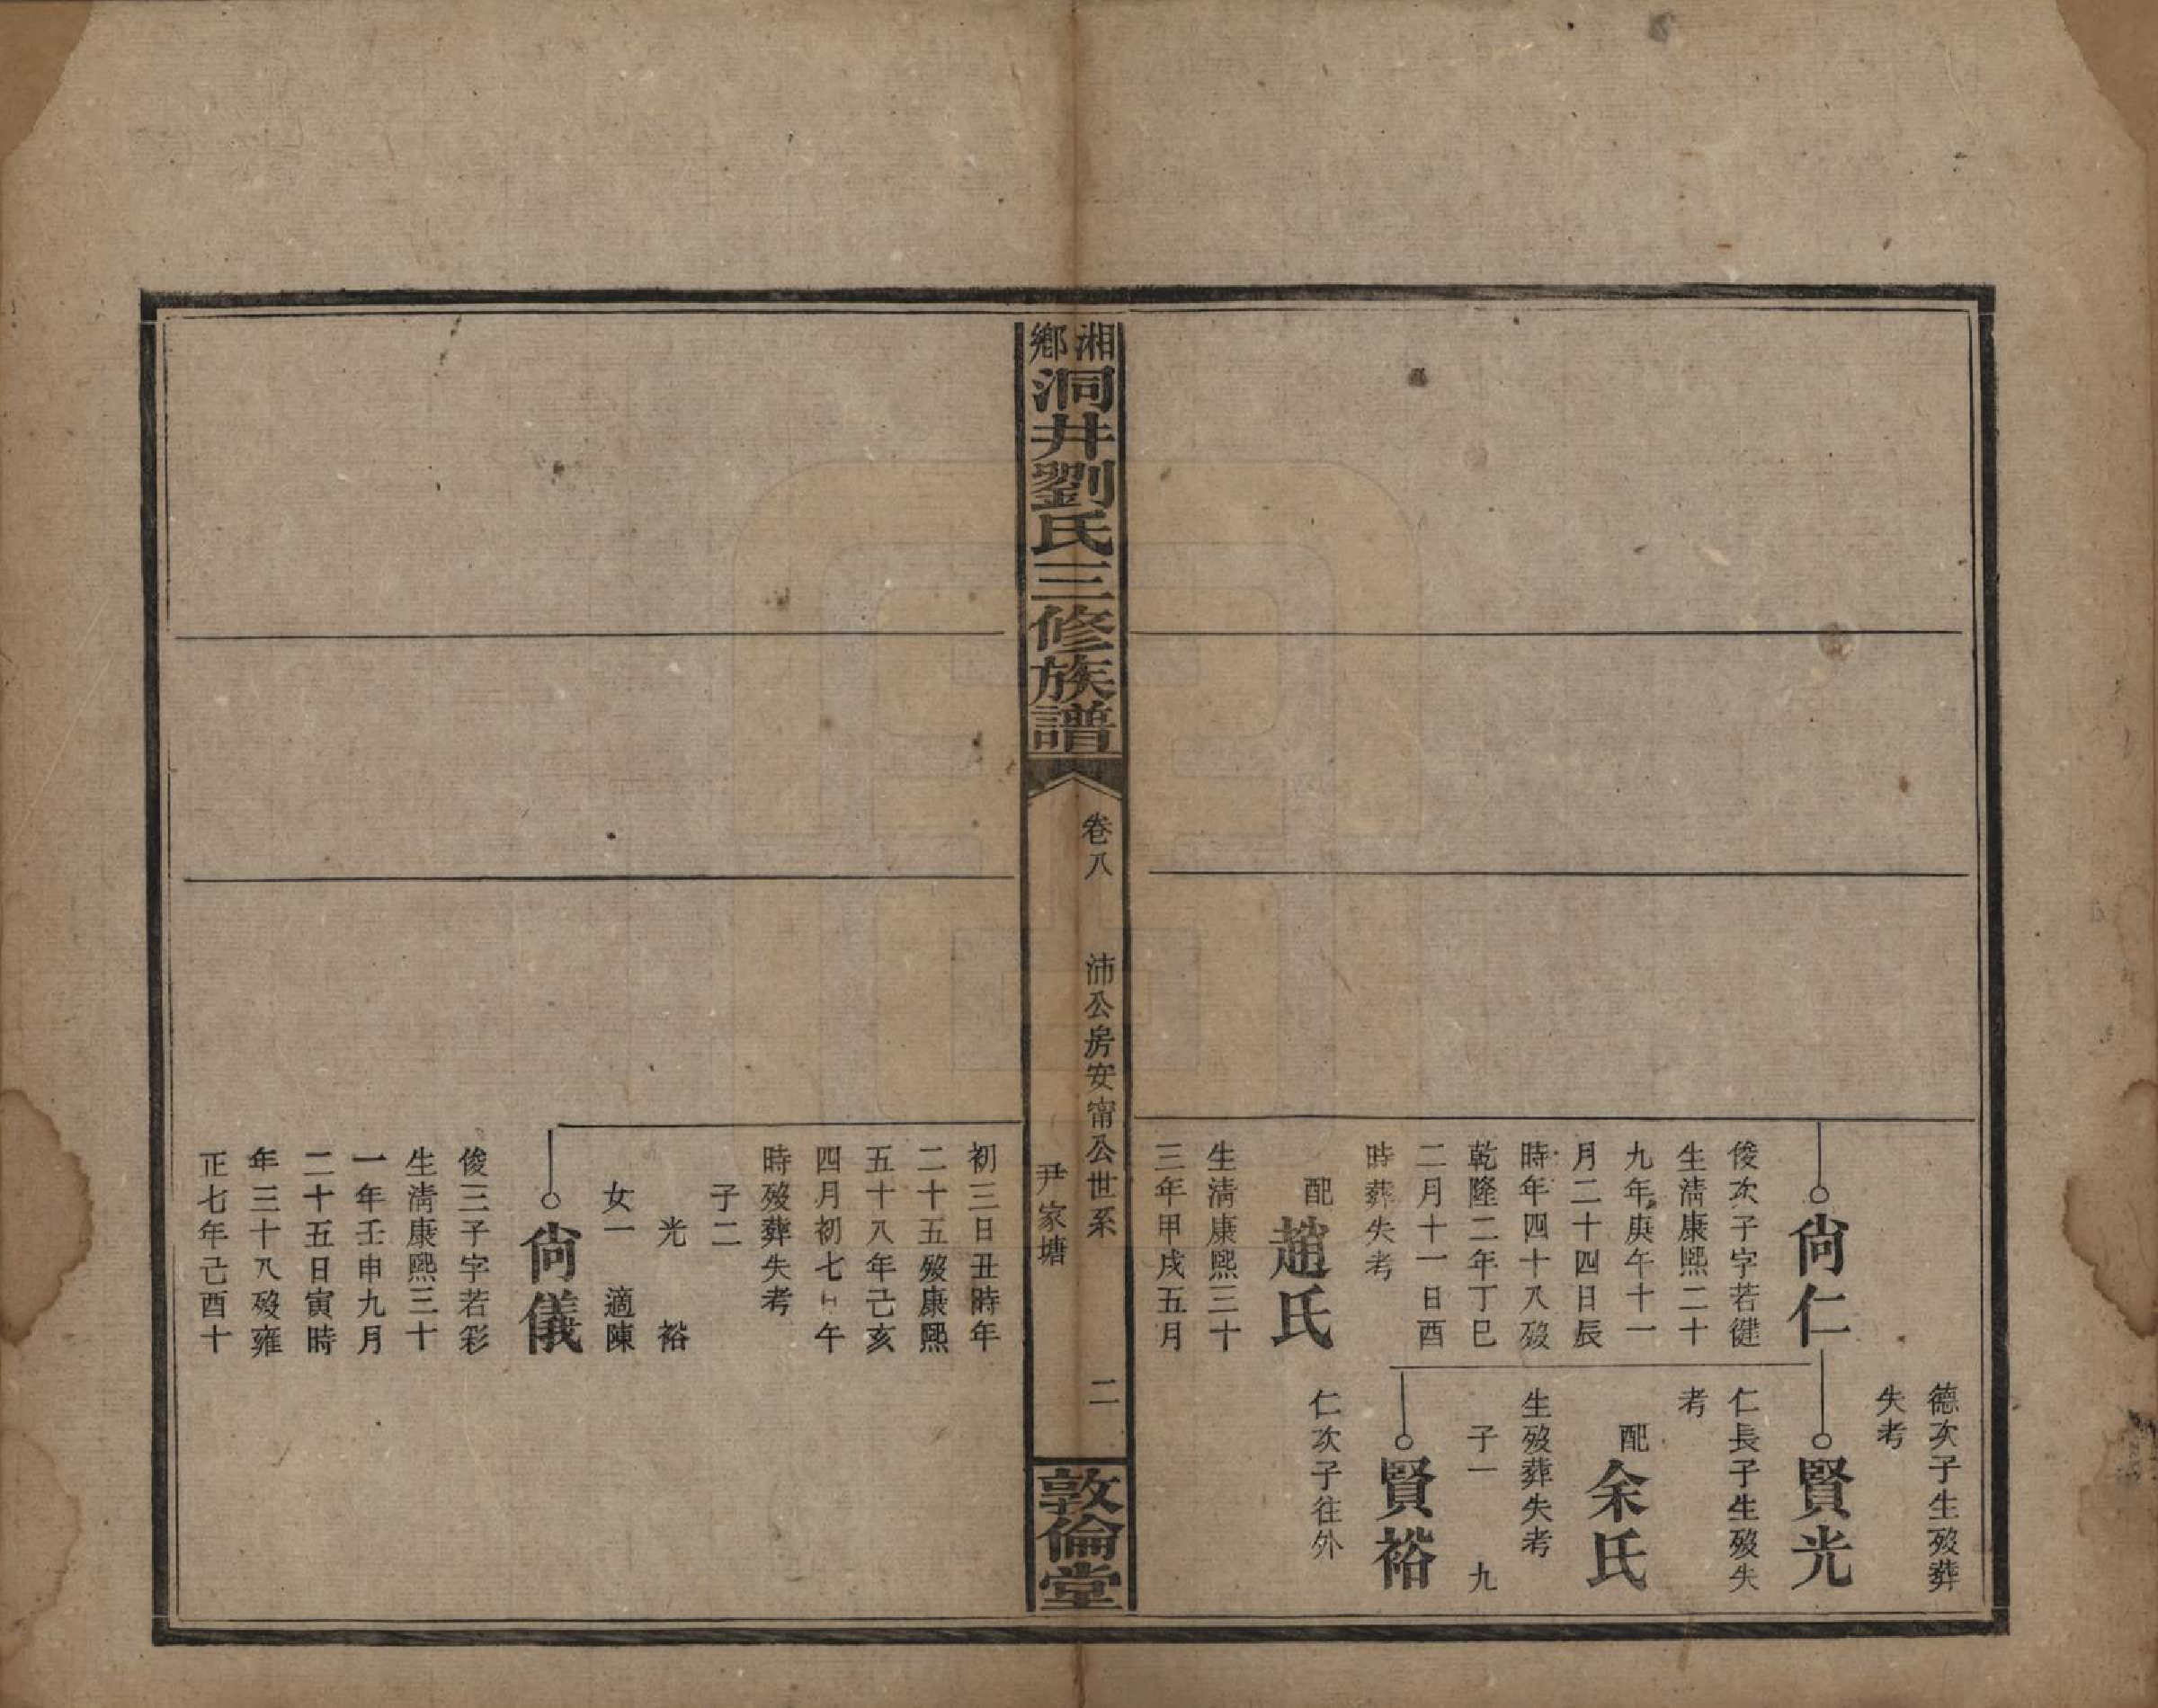 德次子生歿葬
失考
尙仁
俊次子字若健
生淸康熙二十
九年庚午十一
月二十四日辰
時年四十八歿
乾隆二年丁巳
二月十一日酉
時葬失考
配
趙氏
生淸康熙三十
三年甲戌五月
賢光
仁長子生歿失
考
配
余氏
生歿葬失考
子一 九
賢裕
仁次子往外
湘鄉
洞井劉氏三修族譜
卷八
沛公房安甯公世系
尹家塘
二
敦倫堂
初三日丑時年
二十五歿康熙
五十八年己亥
四月初七日午
時歿葬失考
子二
光 裕
女一 適陳
尙儀
俊三子字若彩
生淸康熙三十
一年壬申九月
二十五日寅時
年三十八歿雍
正七年己酉十